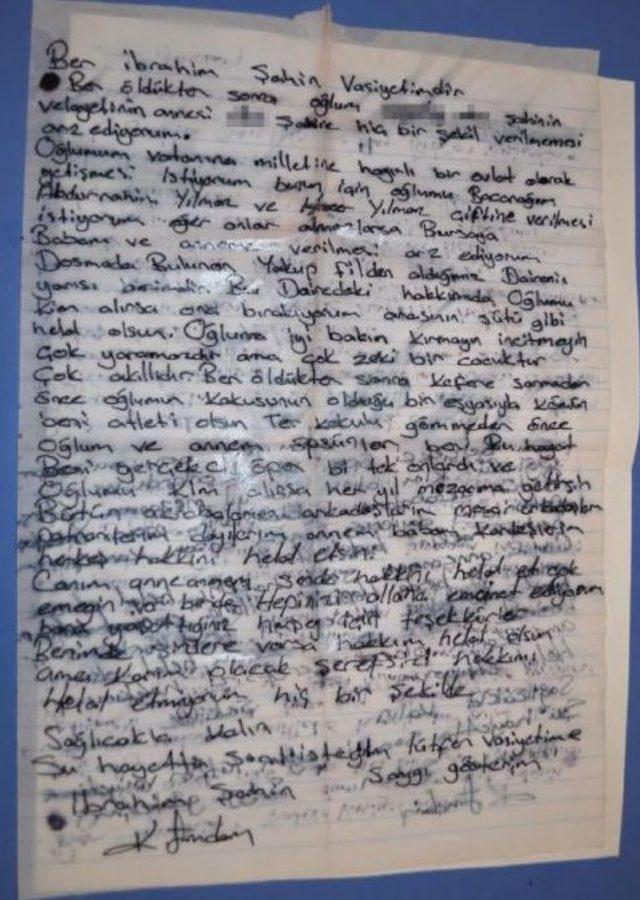 Ben İbrahim Şahin Vasiyetimdir
Ben öldükten sonra oğlum şahinin
velayetinin annesi Şahine hiç bir şekil verilmemesi
arz ediyorum.
Oğlumun vatanına milletine hayırlı bir evlat olarak
yetişmesi istiyorum bunun için oğlumu Bacanağım
Abdurrahim Yılmaz ve Yılmaz çiftine verilmesi
istiyorum eğer onlar almazlarsa Bursaya
Babam ve anneme verilmesi arz ediyorum
Dosmada Bulunan Yakup filden aldığımız Dairenin
yarısı benimdir Bu Dairedeki hakkımıda Oğlumu
kim alırsa ona bırakıyorum anasının sütü gibi
helal olsun. Oğluma iyi bakın kırmayın incitmeyin
çok yaramazdır ama çok zeki bir çocuktur
Çok akıllıdır Ben öldükten sonra kefene sarmadan
önce oğlumun kokusunun olduğu bir eşyasıyla
beni atleti olsun Ter kokulu gömmeden önce
Oğlum ve annem öpsünler beni Bu hayat
Beni gerçekçi öpen bi tek onlardı ve
Oğlumu kim alırsa her yıl mezarıma getirsin
Bütün akrabalarımın arkadaşların
patronlarım dayılarım annem babam kardeşlerim
herkes hakkını helal etsin
Canım anneannem sende hakkını helal et çok
emeğin var birde Hepinizi allaha emanet ediyorum
bana yaptığınız herşey için teşekkürler
Benimde sizlere varsa hakkım helal olsun
ama Karım olacak şerefsize hakkımı
Helal etmiyorum hiç bir şekilde
Sağlıcakla kalın
Şu hayatta Son isteğim lütfen vasiyetime
saygı gösterin
İbrahim Şahin